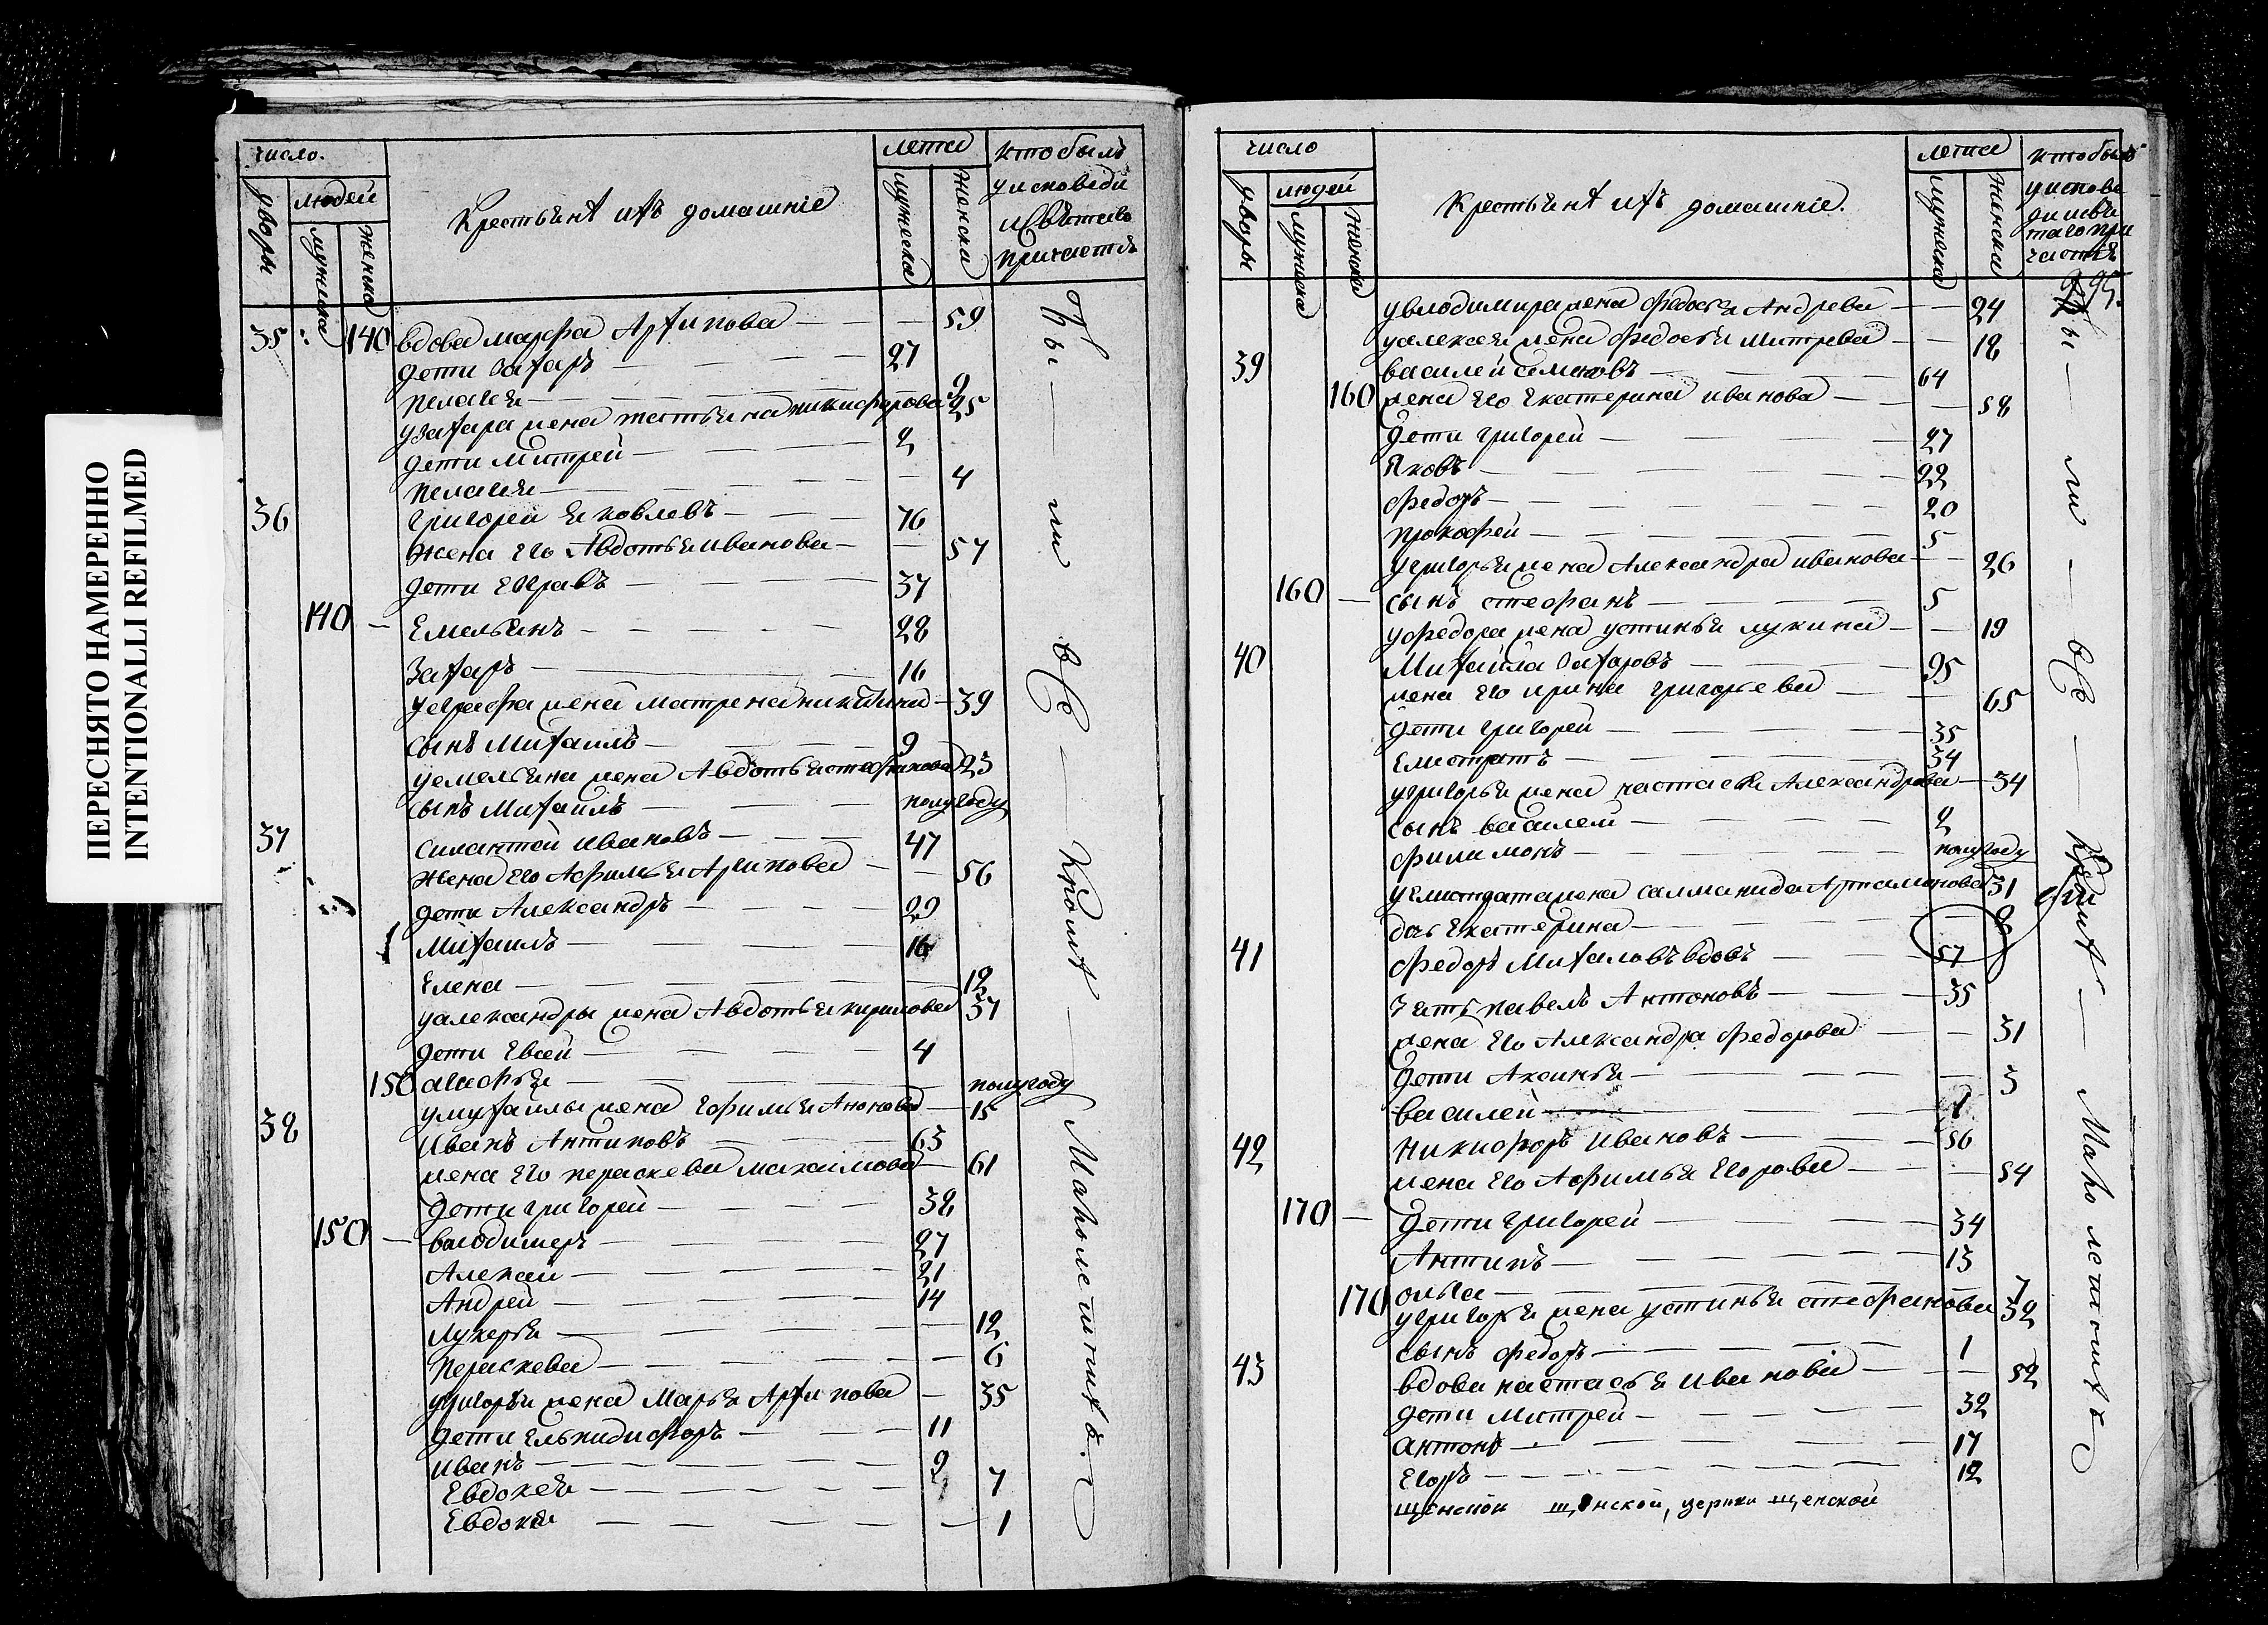 ПЕРЕСНЯТО НАМЕРЕННО
INTENTIONALLI REFILMED
число.
лета
кто былъ
у исповеди
и святаго
причастія
дворы
людей
мужска
женска
Крестьянѣ ихъ домашніе
мужеска
женска
35 140 вдова марфа Архипова 59
дети Захаръ 27
пелагея 9
у захара жена татьяна никифорова 25
дети митрей 2
пелагея 4
36 григорей яковлевъ 76
жена его Авдотья иванова 57
дети евграфъ 37
140 Емельянъ 28
Захаръ 16
у евграфа жена матрена никитина 39
сынъ Михаилъ 9
у емельяна жена Авдотья стефанова 23
сынъ Михаилъ полугоду
37 силантей ивановъ 47
жена его Афимья Архипова 56
дети Александръ 29
Михаилъ 16
Елена 12
у александры жена Авдотья кирилова 37
дети Евсей 4
150 агафья полугоду
у михайлы жена Ефимья 15
38 Иванъ Антиповъ 63
жена его пераскева максимова 61
дети григорей 38
150 володимеръ 27
Алексей 21
Андрей 14
лукерья 12
Пераскева 6
у григорья жена Марья Архипова 35
дети ельпидифоръ 11
иванъ 9
Евдокея 7
Евдокея 1
Ѳы ли все Кромѣ Малолетнихъ
число
лета
кто былъ
у испове
ди и свя
таго при
частія
дворы
людей
мужеска
женска
Крестьянѣ ихъ домашніе.
мужеска
женска
у володимира жена федосья Андрева 24
у алексея жена федосья митрева 18
39 василей семеновъ 64
160 жена его екатерина иванова 58
дети григорей 27
Яковъ 22
федоръ 20
прокофей 5
у григорья жена Александра иванова 26
160 сынъ стефанъ 5
у федора жена устинья лукина 19
40 Михайла Захаровъ 95
жена его ирина григорьева 65
дети григорей 35
Елистратъ 34
у григорья жена настасья Александрова 34
сынъ василей 2
филимонъ полугоду
у елистрата жена саламанида Артамонова 31
дочь екатерина 8
41 федоръ Михаловъ вдовъ 57
зять павелъ Антоновъ 35
жена его Александра федорова 31
дети Аксинья 3
василей 1
42 Никифоръ ивановъ 56
жена его Афимья Егорова 54
170 дети григорей 34
Антипъ 13
ольга 7
170 у григорья жена устинья стефанова 32
сынъ федоръ 1
43 вдова настасья иванова 52
дети Митрей 32
антонъ 17
Егоръ 12
щенской щенской, церкви щенской
ли все Кромѣ Малолетнихъ